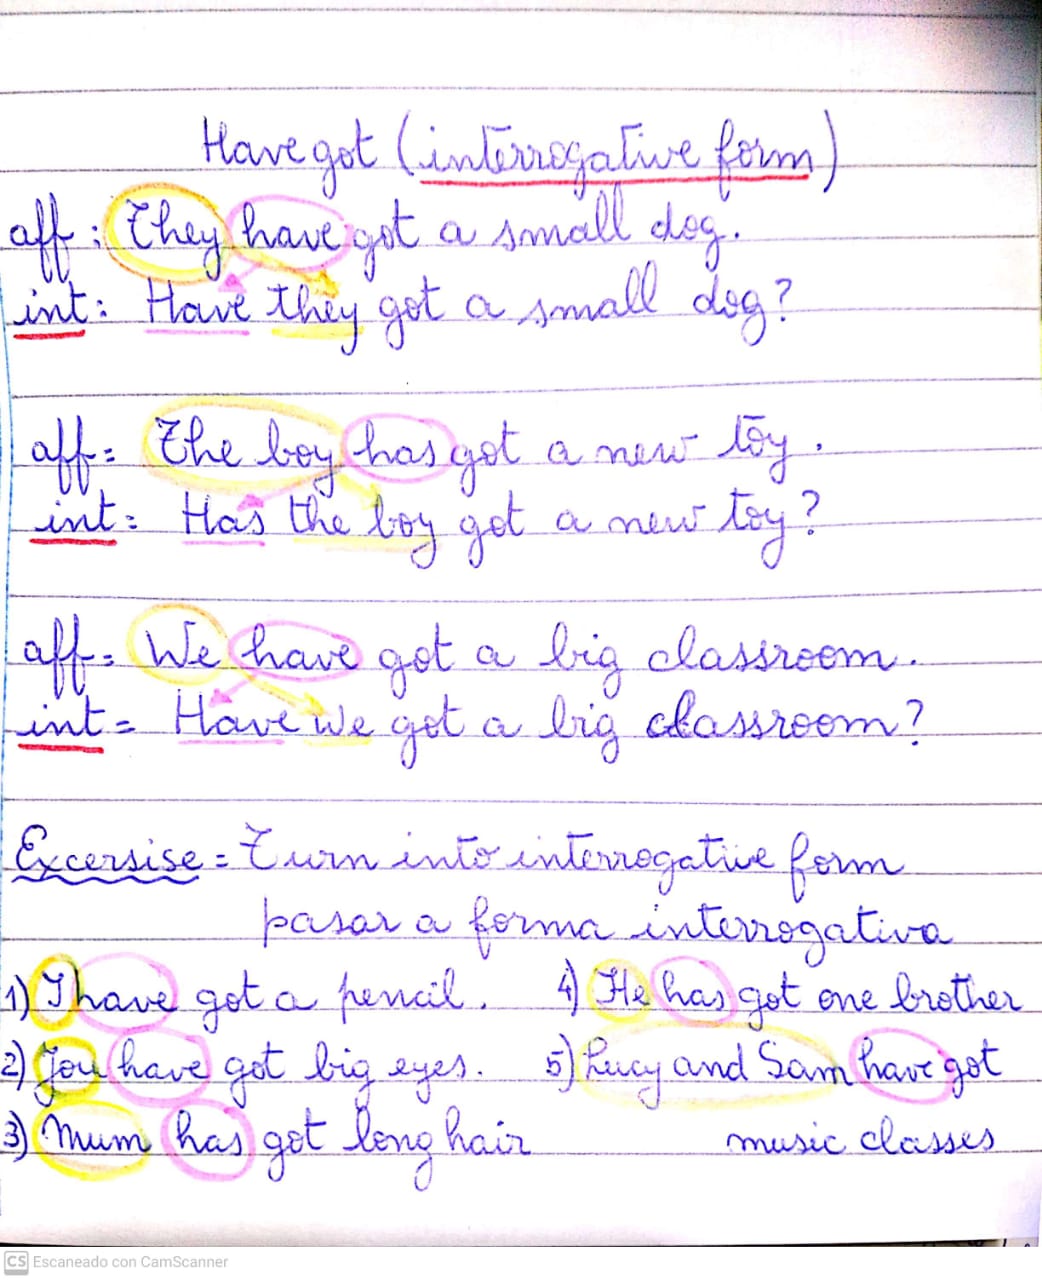 Have got (interrogative form)
aff: They have got a small dog.
int: Have they got a small dog?
aff= The boy has got a new toy.
int= Has the boy got a new toy?
aff= We have got a big classroom.
int= Have we got a big classroom?
Excersise = Turn into interrogative form
pasar a forma interrogativa
1) I have got a pencil.
2) You have got big eyes.
3) Mum has got long hair
4) He has got one brother
5) Lucy and Sam have got
music classes
CS Escaneado con CamScanner